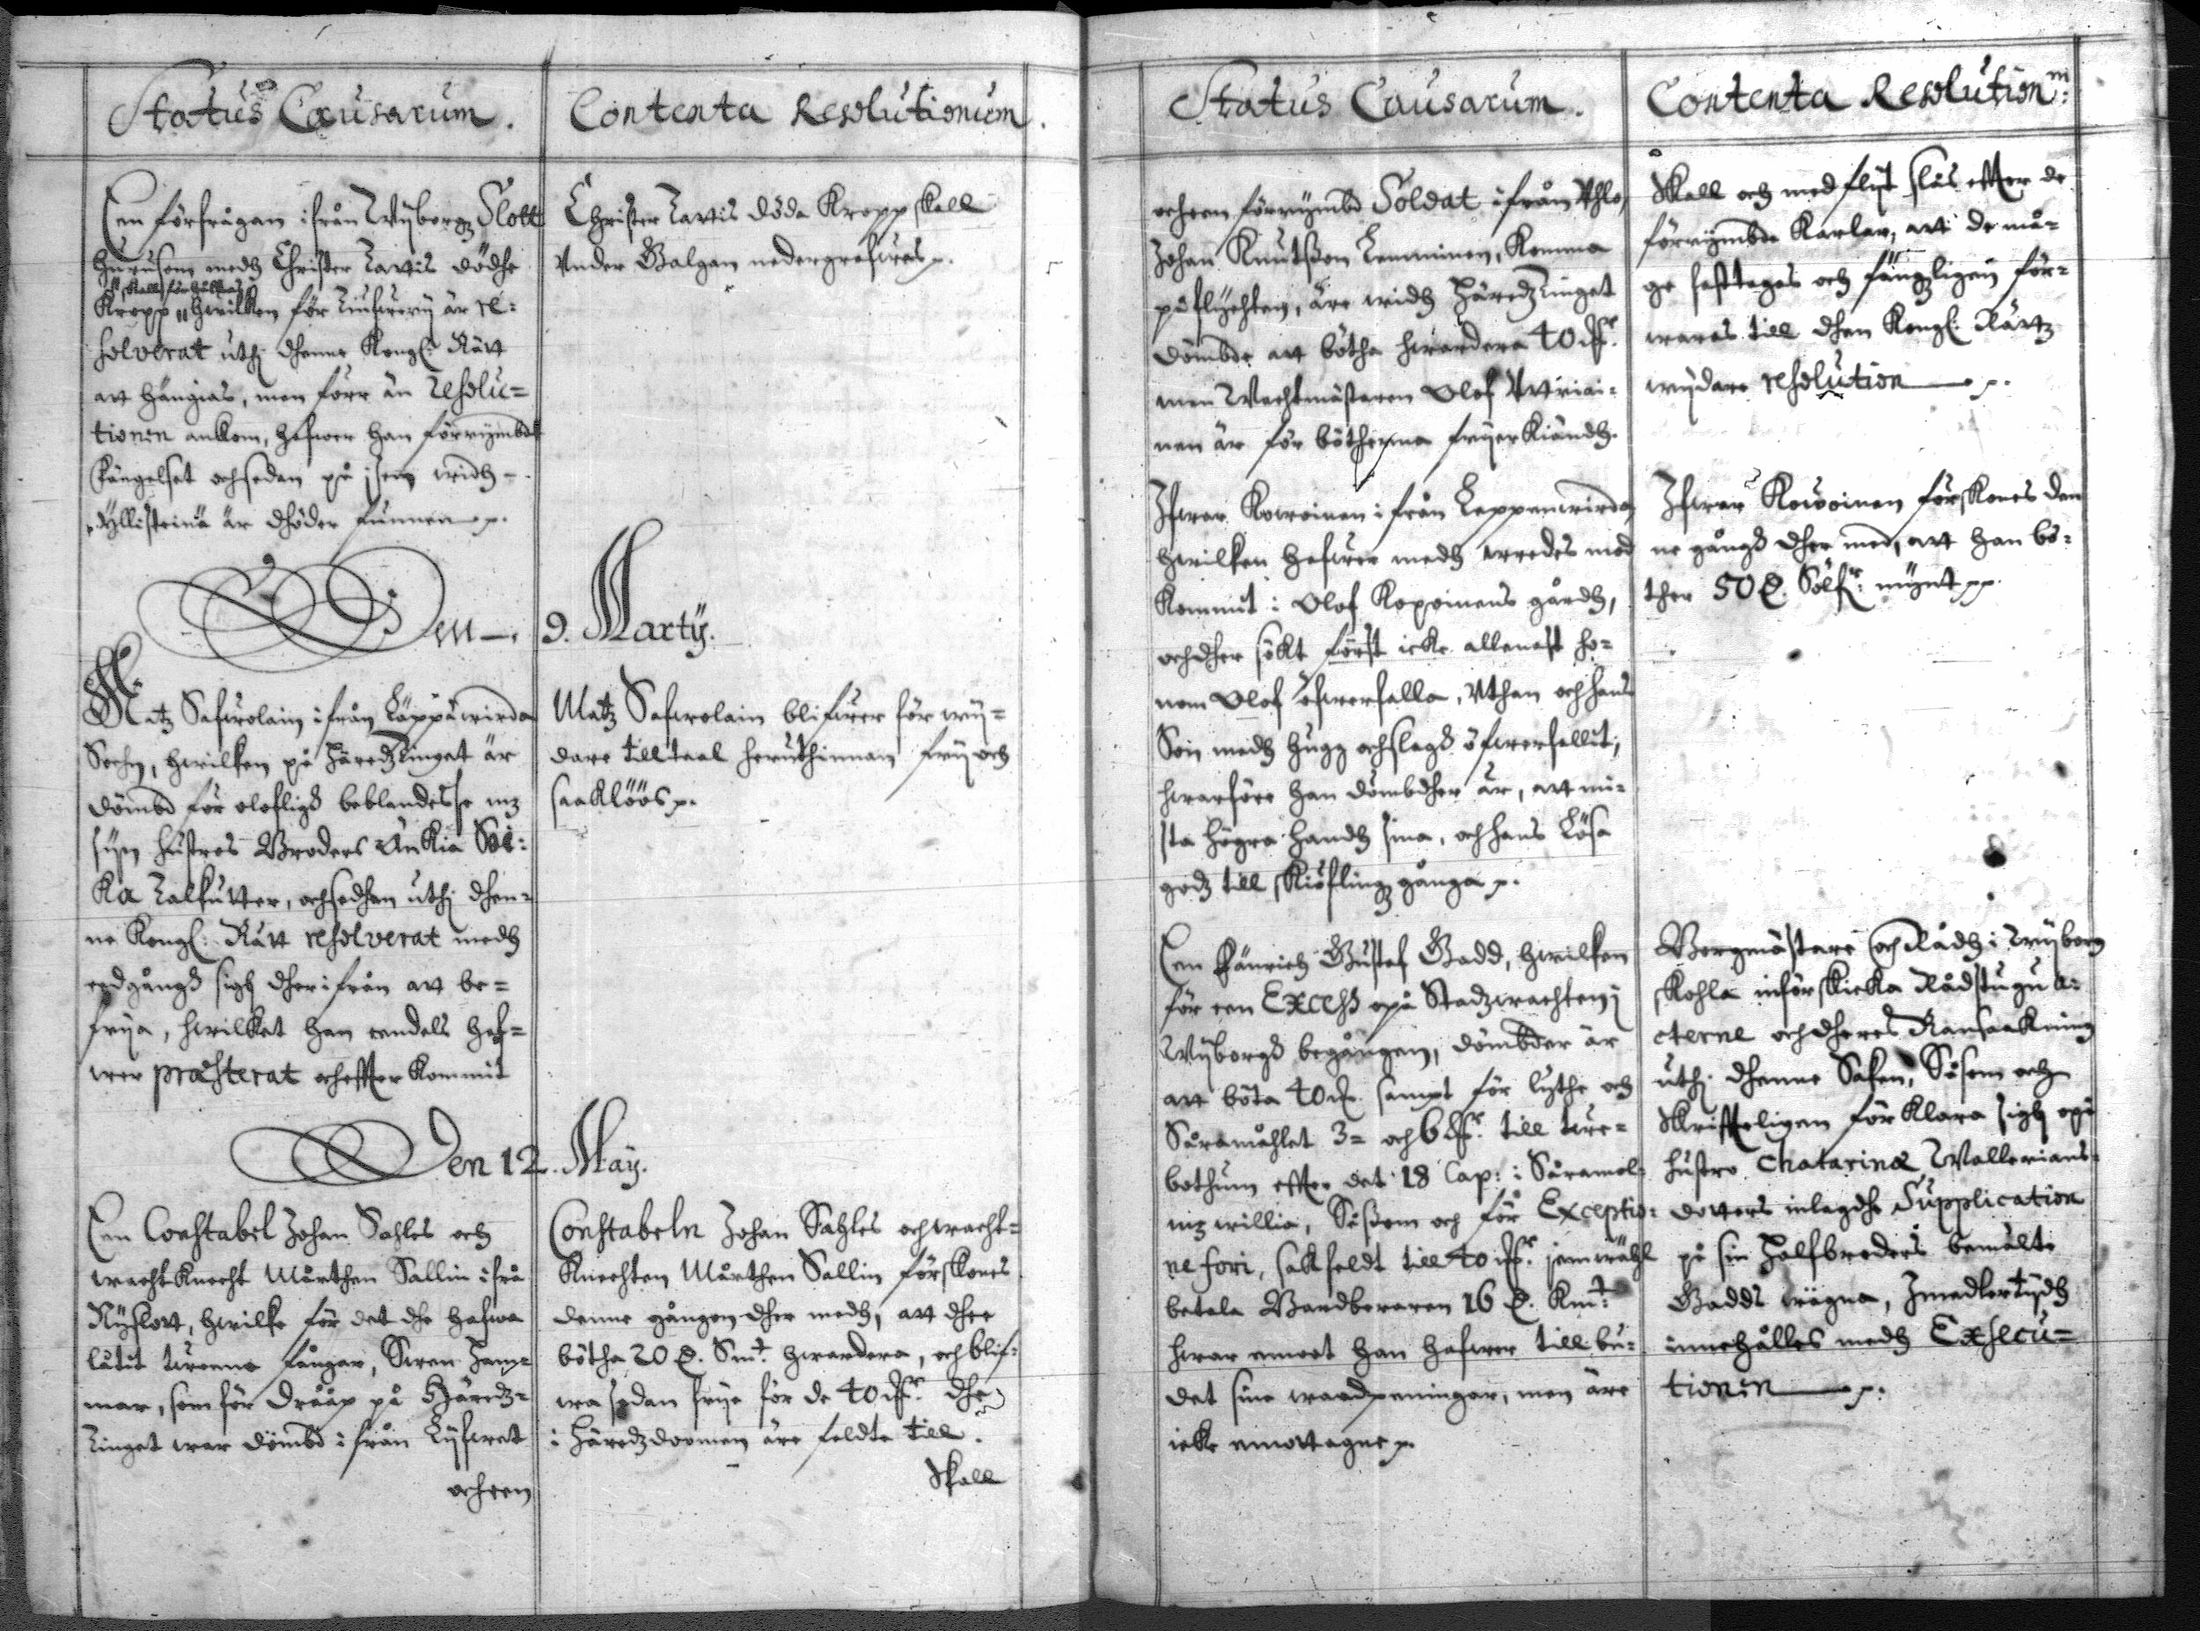 Status Causarum.
Contenta Resolutionum.
Een förfrågan ifrån Wÿborgz Slott
Huru som medh Christer Lartis dödhe
skall förhållas
Kropp hwilken för Tiufwerÿ är re:
solverat uthj dhenne Kongl: Rätt
att hängias, men förr än resolu=
tionen ankom, hafwer han förrÿmbdt
fängelset och sedan på isen widh
Kÿllisteinä är dhöder funnen p.
Christer Lartis döda Kropp skall
Under Galgan nedergrafwes p.
Den 9. Martÿ.
Matz Safwolain ifrån Läppäwirda
Sochn, hwilken på Häredztinget är
dömbd för olofligh beblandelsse mz
sijn hustros Broders Änkia Soi=
ka Talkutter, och sedhan uthj dhen=
ne Kongl: Rätt resolverat medh
eedgångh sigh dherifrån att be=
frija, hwilket han eendels haf=
wer præsterat och effter kommit
Matz Safwolain blifwer för wij=
dare till taal heruthinnan frij och
saaklöös p.
Den 12. Maÿ.
Een Constabel Johan Sahles och
wachtknecht Mårthen Sallin ifrå
Nÿslott, hwilke för det dhe hafwa
låtit twenne fångar, Swen Jam=
mar, som för dråäp på Häredz=
tinget war dömbd ifrån Lijfwet
och een
Constabeln Johan Sahles och wacht=
knechten Mårthen Sallin förskones
denne gången dher medh, att dhee
bötha 20 D. Smt. hwardera, och blif=
wa sedan frije för de 40 mkr. dhe
i häredzdoomen äre feldte till.
Skall
Status Causarum.
Contenta Resolution:m
och een förrÿmbd Soldat ifrån Uhlo,
Johan Knutsson Lemminen, komma
på flychten, äre widh Häredztinget
dömbde att bötha hwardera 40 mkr.
men Wachtmästaren Olof Uttriai=
nen är för bötherna frijer kiändh.
Skall och med flijt slås effter de
förrÿmbde Karlar, att de må=
ge fasttages och fängzligen för=
waras till dhen Kongl: Rättz
wijdare resolution p.
Ifwar Kowoinen ifrån Leppawirda,
hwilken hafwer medh wredes mod
kommit i Olof Kopoinens gårdh,
och dher sökt först icke allenast ho=
nom Olof öfwerfalla, uthan och hans
Son medh hugg och slagh öfwerfallit,
hwarföre han dömbdher är, att mi=
sta högra handh sina, och hans Lösa
godz till skiöfling gånga p.
Ifwar Kowoinen förskones den
ne gångh dher med, att han bö=
ther 50 D. Sölfr: mÿnt pp.
Een Fänrich Gustaf Gadd, hwilken
för een Excess opå Stadzwachten i
Wÿborgh begången, dömbder är
att böta 40 m. sampt för lythe och
Såramåhlet 3= och 6 mkr. till twe=
bothum effter det 18 Cap: i Såramål=
mz willia, Såssom och för Exceptio=
ne fori, sakfeldt till 40 mkr. jemwähl
betala Bardberaren 16 D. Kmt:
hwar emoot han hafwer till bu=
det sine waadpeningar, men äre
icke emottagne p.
Borgmästare och Rådh i Wijborg
skohle införskicka Rådstugu a=
cterne och dheres Ransaakning
uthj dhenne Saken, Såsom och
skrifteligen förklara sigh opå
hustro Chatarinæ Wallerians=
dotters inlagdhe Supplication
på sin Halfbroders bemälte
Gadds wägna, Jmedlertijdh
innehålles medh Execu=
tionen p.